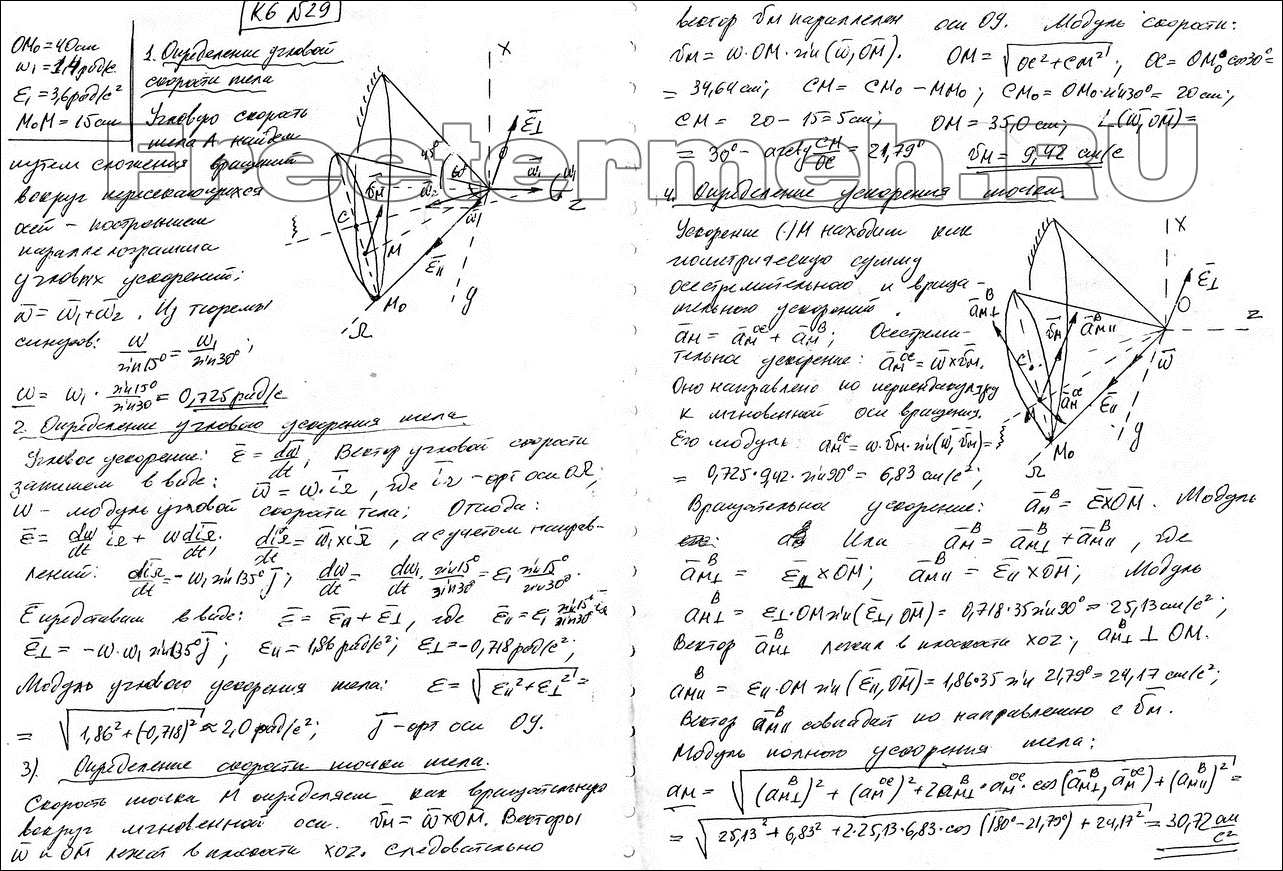 К6 №29
OM₀ = 40 см
ω₁ = 1,4 рад/с
ε₁ = 3,6 рад/с²
M₀M = 15 см
1. Определение угловой
скорости тела
Угловую скорость
тела А найдем
путем сложения вращений
вокруг пересекающихся
осей – построением
параллелограмма
угловых ускорений:
ω̄ = ω̄₁ + ω̄₂ . Из теоремы
синусов: ω/sin15° = ω₁/sin30° ;
ω = ω₁ · sin15°/sin30 = 0,725 рад/с
X
ε̄⊥
45°
60°
ω̄₁
ω₁
ω̄₂
Z
v̄м
ω̄
C
M
ε̄₁₁
ξ
M₀
y
Ω
2. Определение углового ускорения тела.
Угловое ускорение: ε̄ = dω̄/dt ; Вектор угловой скорости
запишем в виде: ω̄ = ω · īΩ , где īΩ – орт оси OΩ;
ω – модуль угловой скорости тела; Отсюда:
ε̄ = dω/dt īΩ + ω dīΩ/dt ; dīΩ/dt = ω̄₁ × īΩ , а с учетом направ-
лений: dīΩ/dt = -ω₁ sin135° j̄ ; dω/dt = dω₁/dt · sin15°/sin30° = ε₁ sin15°/sin30° .
ε̄ представим в виде: ε̄ = ε̄₁₁ + ε̄⊥ , где ε̄₁₁ = ε₁ sin15°/sin30° īΩ
ε̄⊥ = -ω·ω₁ sin135° j̄ ; ε₁₁ = 1,86 рад/с² ; ε⊥ = -0,718 рад/с² ;
Модуль углового ускорения тела: ε = √(ε₁₁² + ε⊥²) =
= √(1,86² + (-0,718)²) ≈ 2,0 рад/с² ; j̄ – орт оси OY.
3). Определение скорости точки тела.
Скорость точки M определяем как вращательную
вокруг мгновенной оси. v̄м = ω̄ × OM̄. Векторы
ω̄ и OM̄ лежат в плоскости XOZ. Следовательно
вектор v̄м параллелен оси OY. Модуль скорости:
vм = ω · OM · sin(ω̄, OM̄). OM = √(OC² + CM²) ; OC = OM₀ cos30° =
= 34,64 см; CM = CM₀ – MM₀ ; CM₀ = OM₀·sin30° = 20 см;
CM = 20 – 15 = 5 см; OM = 35,0 см; ∠(ω̄, OM̄) =
= 30° – arctg CM/OC = 21,79° ; vм = 9,42 см/с
4. Определение ускорения точки.
Ускорение (·) M находим как
геометрическую сумму
осестремительного и враща-
тельного ускорений.
āм = āмᵒᶜ + āмᴮ ; Осестреми-
тельное ускорение: āмᵒᶜ = ω̄ × v̄м.
Оно направлено по перпендикуляру
к мгновенной оси вращения.
Его модуль: aмᵒᶜ = ω · vм · sin(ω̄, v̄м) =
= 0,725 · 9,42 · sin90° = 6,83 см/с² ;
X
ε̄⊥
āм⊥ᴮ
v̄м
āм₁₁ᴮ
Z
C
ω̄
āмᵒᶜ
M
ε̄₁₁
ξ
M₀
y
Ω
Вращательное ускорение: āмᴮ = ε̄ × OM̄ . Модуль
Или āмᴮ = āм⊥ᴮ + āм₁₁ᴮ , где
āм⊥ᴮ = ε̄⊥ × OM̄ ; āм₁₁ᴮ = ε̄₁₁ × OM̄ ; Модуль
aм⊥ᴮ = ε⊥ · OM sin(ε̄⊥, OM̄) = 0,718 · 35 sin90° = 25,13 см/с² ;
Вектор āм⊥ᴮ лежит в плоскости XOZ ; āм⊥ᴮ ⊥ OM.
aм₁₁ᴮ = ε₁₁ · OM sin(ε̄₁₁, OM̄) = 1,86·35 sin 21,79° = 24,17 см/с² ;
Вектор āм₁₁ᴮ совпадает по направлению с v̄м.
Модуль полного ускорения тела:
aм = √((aм⊥ᴮ)² + (aмᵒᶜ)² + 2aм⊥ᴮ · aмᵒᶜ · cos(āм⊥ᴮ, āмᵒᶜ) + (aм₁₁ᴮ)²) =
= √(25,13² + 6,83² + 2·25,13·6,83·cos(180° – 21,79°) + 24,17²) = 30,72 см/с²
Reetermeh.RU